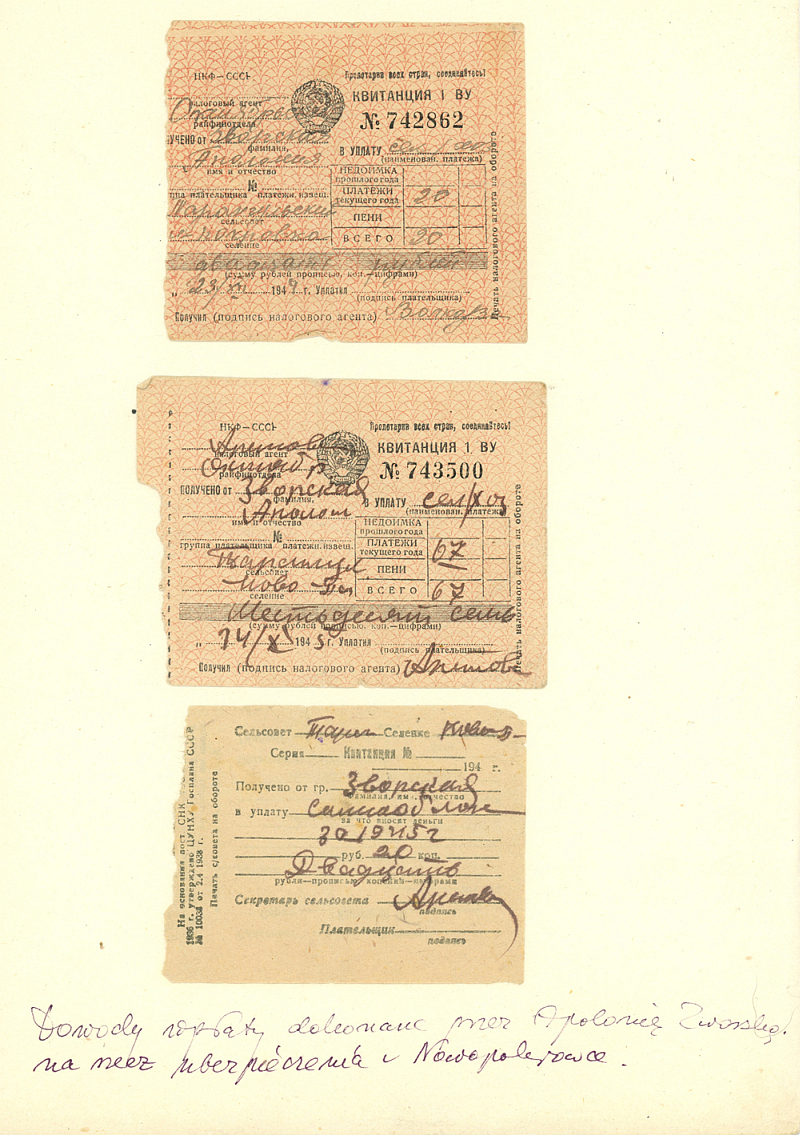 НКФ—СССР
Пролетарии всех стран, соединяйтесь!
КВИТАНЦИЯ 1 ВУ
№ 742862
налоговый агент
райфинотдела
ПОЛУЧЕНО ОТ Зворская
фамилия,
Аполония
имя и отчество
В УПЛАТУ
(наименован. платежа)
№
группа плательщика платежн. извещ.
НЕДОИМКА прошлого года
ПЛАТЕЖИ текущего года 20
ПЕНИ
ВСЕГО 20
сельсовет
Н-Покровка
селение
двадцать рублей
(сумму рублей прописью, коп.—цифрами)
„ 23 1944 г. Уплатил
(подпись плательщика)
Получил (подпись налогового агента)
Печать налогового агента на обороте
НКФ—СССР
Пролетарии всех стран, соединяйтесь!
КВИТАНЦИЯ 1 ВУ
№ 743500
налоговый агент
райфинотдела
ПОЛУЧЕНО ОТ Зворская
фамилия,
Аполон
имя и отчество
В УПЛАТУ сел/хоз
(наименован. платежа)
№
группа плательщика платежн. извещ.
НЕДОИМКА прошлого года
ПЛАТЕЖИ текущего года 67
ПЕНИ
ВСЕГО 67
сельсовет
Ново-
селение
Шестьдесят семь
(сумму рублей прописью, коп.—цифрами)
„ 14/XI 1945 г. Уплатил
(подпись плательщика)
Получил (подпись налогового агента)
Печать налогового агента на обороте
На основании пост. СНК СССР
1936 г. утверждено ЦУНХУ Госплана СССР
№ 10034 от 2.4 1938 г.
Печать с/совета на обороте
Сельсовет Селение
Серия Квитанция №
194 г.
Получено от гр. Зворская
фамилия, имя, отчество
в уплату
за что вносят деньги
за 1945 г
руб. 20 коп.
Двадцать
рубли—прописью копейки—цифрами
Секретарь сельсовета
подпись
Плательщик
подпись
Dowody wpłaty dokonane przez Apolonię Zworską
na rzecz ubezpieczenia w Nowopokrowce.